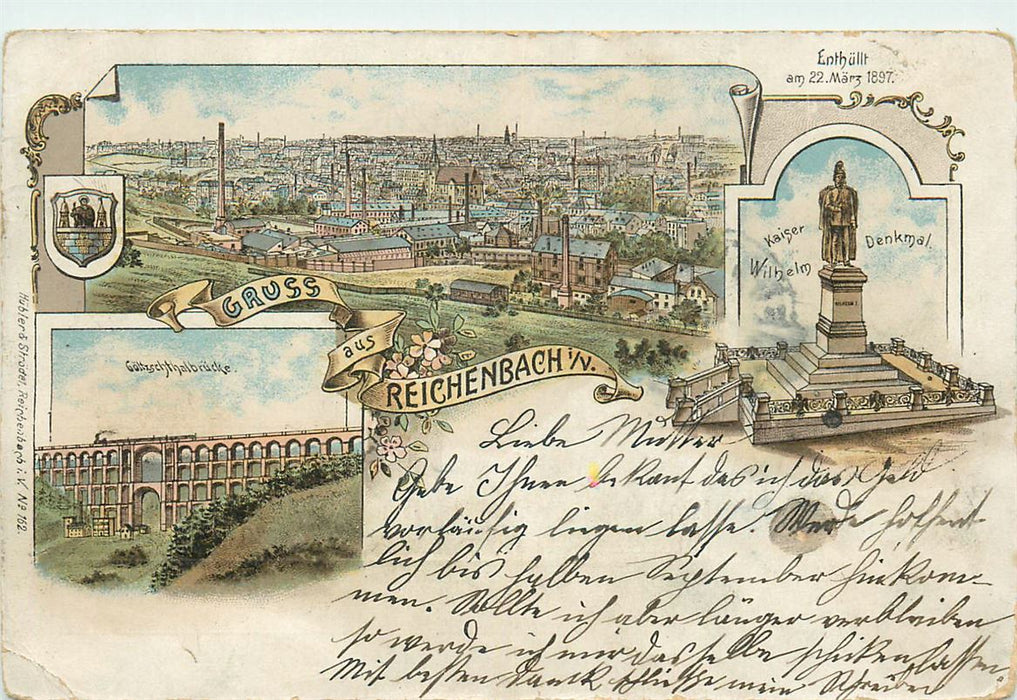 Enthüllt
am 22. März 1897.
Kaiser
Wilhelm
Denkmal.
WILHELM I.
GRUSS
aus
REICHENBACH i/V.
Göltzschthalbrücke
Hübler & Strodel, Reichenbach i. V. No 162.
Liebe Mutter
Gebe Ihnen bekant das ich das Geld
vorläufig liegen lasse. Werde hoffent-
lich bis halben September hinkom-
men. Sollte ich aber länger verbleiben
so werde ich mir dasselbe schicken lassen
Mit besten Danck schliesse mein Schreiben